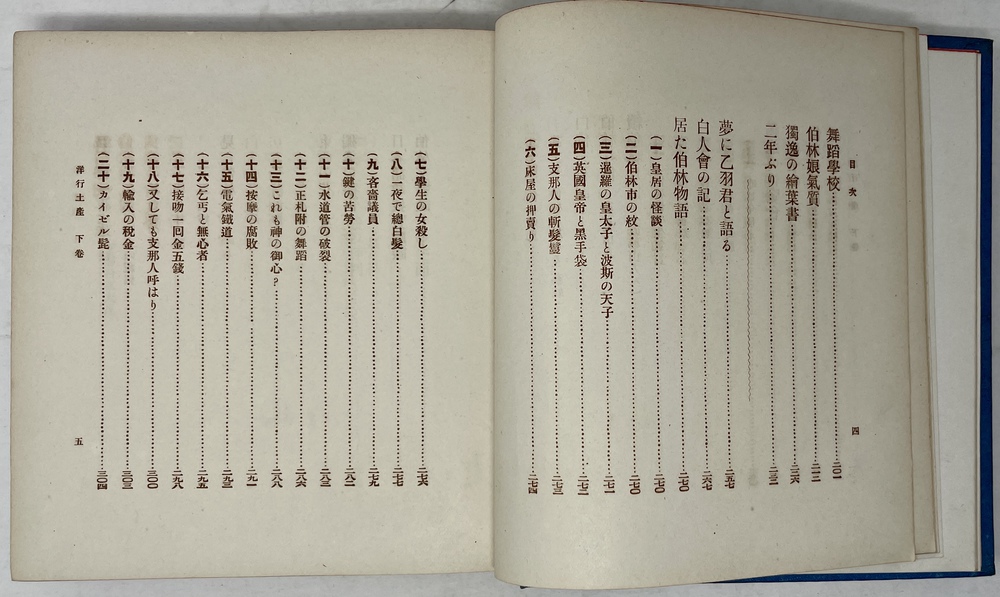 目次
舞蹈學校……二〇一
伯林娘氣質……二一二
獨逸の繪葉書……二二六
二年ぶり……二三二
夢に乙羽君と語る……二五七
白人會の記……二六七
居た伯林物語……二七〇
(一)皇居の怪談……二七〇
(二)伯林市の紋……二七〇
(三)暹羅の皇太子と波斯の天子……二七一
(四)英國皇帝と黑手袋……二七二
(五)支那人の斬髮鬘……二七三
(六)床屋の押賣り……二七四
四
(七)學生の女殺し……二七六
(八)一夜で總白髮……二七七
(九)吝嗇議員……二七九
(十)鍵の苦勞……二八二
(十一)水道管の破裂……二八三
(十二)正札附の舞蹈……二八六
(十三)これも神の御心?……二八八
(十四)按摩の腐敗……二九一
(十五)電氣鐵道……二九三
(十六)乞丐と無心者……二九五
(十七)接吻一回金五錢……二九八
(十八)又しても支那人呼はり……三〇〇
(十九)輸入の稅金……三〇三
(二十)カイゼル髭……三〇四
洋行土產 下卷
五